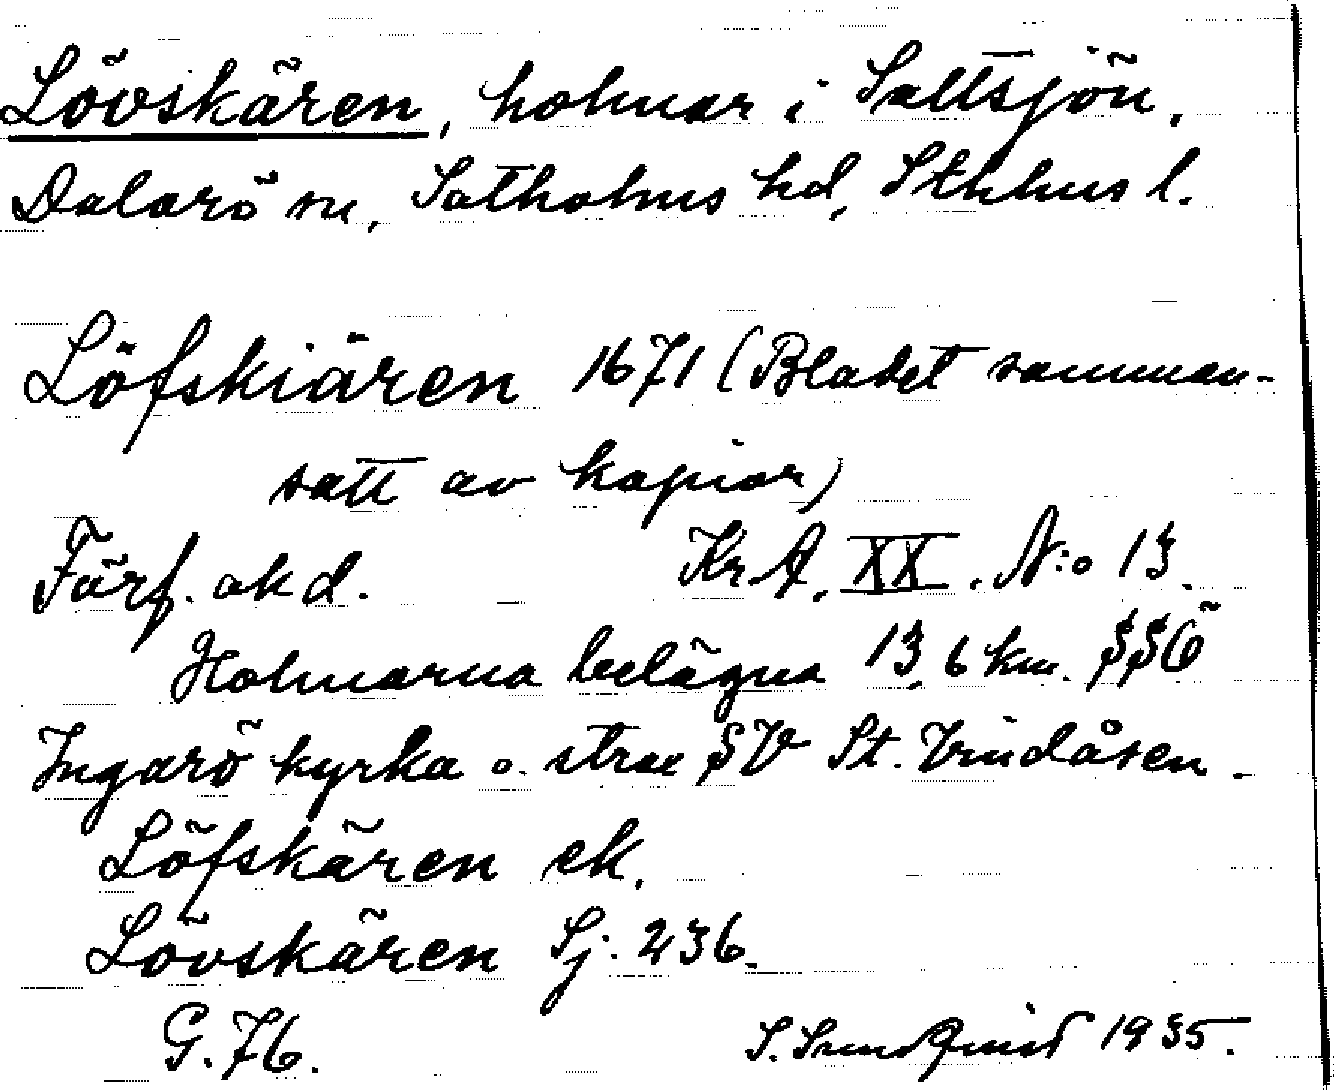 Lövskären, holmar i Saltsjön,
Dalarö sn, Sotholms hd, Sthlms l.
Löfskiären 1671 (Bladet samman-
satt av kopior)
Förf. okd. Kr. A. XX. N:o 13.
Holmarna belägna 13,6 km. SSÖ
Ingarö kyrka o. strax SV St. Vindåsen.
Löfskären ek.
Lövskären Sj. 236.
G. 76. S. Sundqvist 1935.